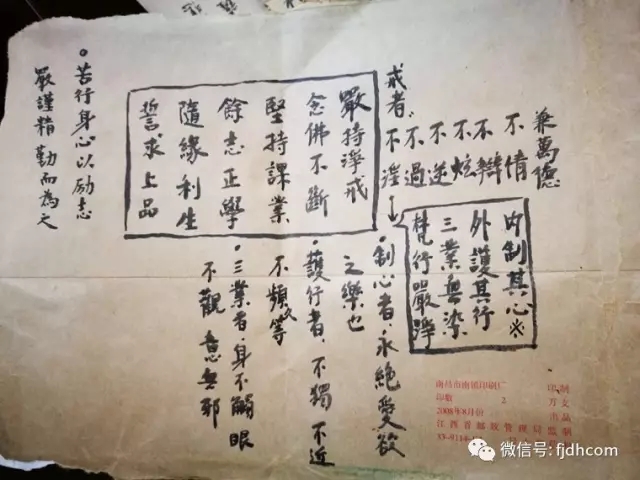 兼萬德
不情
不辯
不炫
不逆
不過
不淫→
戒者、
内制其心※
外護其行
三業無染
梵行嚴淨
嚴持淨戒
念佛不斷
堅持課業
餘志正學
隨緣利生
誓求上品
•制心者,永絕愛欲
之樂也
•護行者,不獨不近
不頻等
•三業者,身不觸眼
不觀 意無邪
•苦行身心以励志
嚴謹精勤而為之
印刷厂 印制
印数 2 万
2008年8月份 出品
江西省邮政管理局监制
微信号: fjdhcom